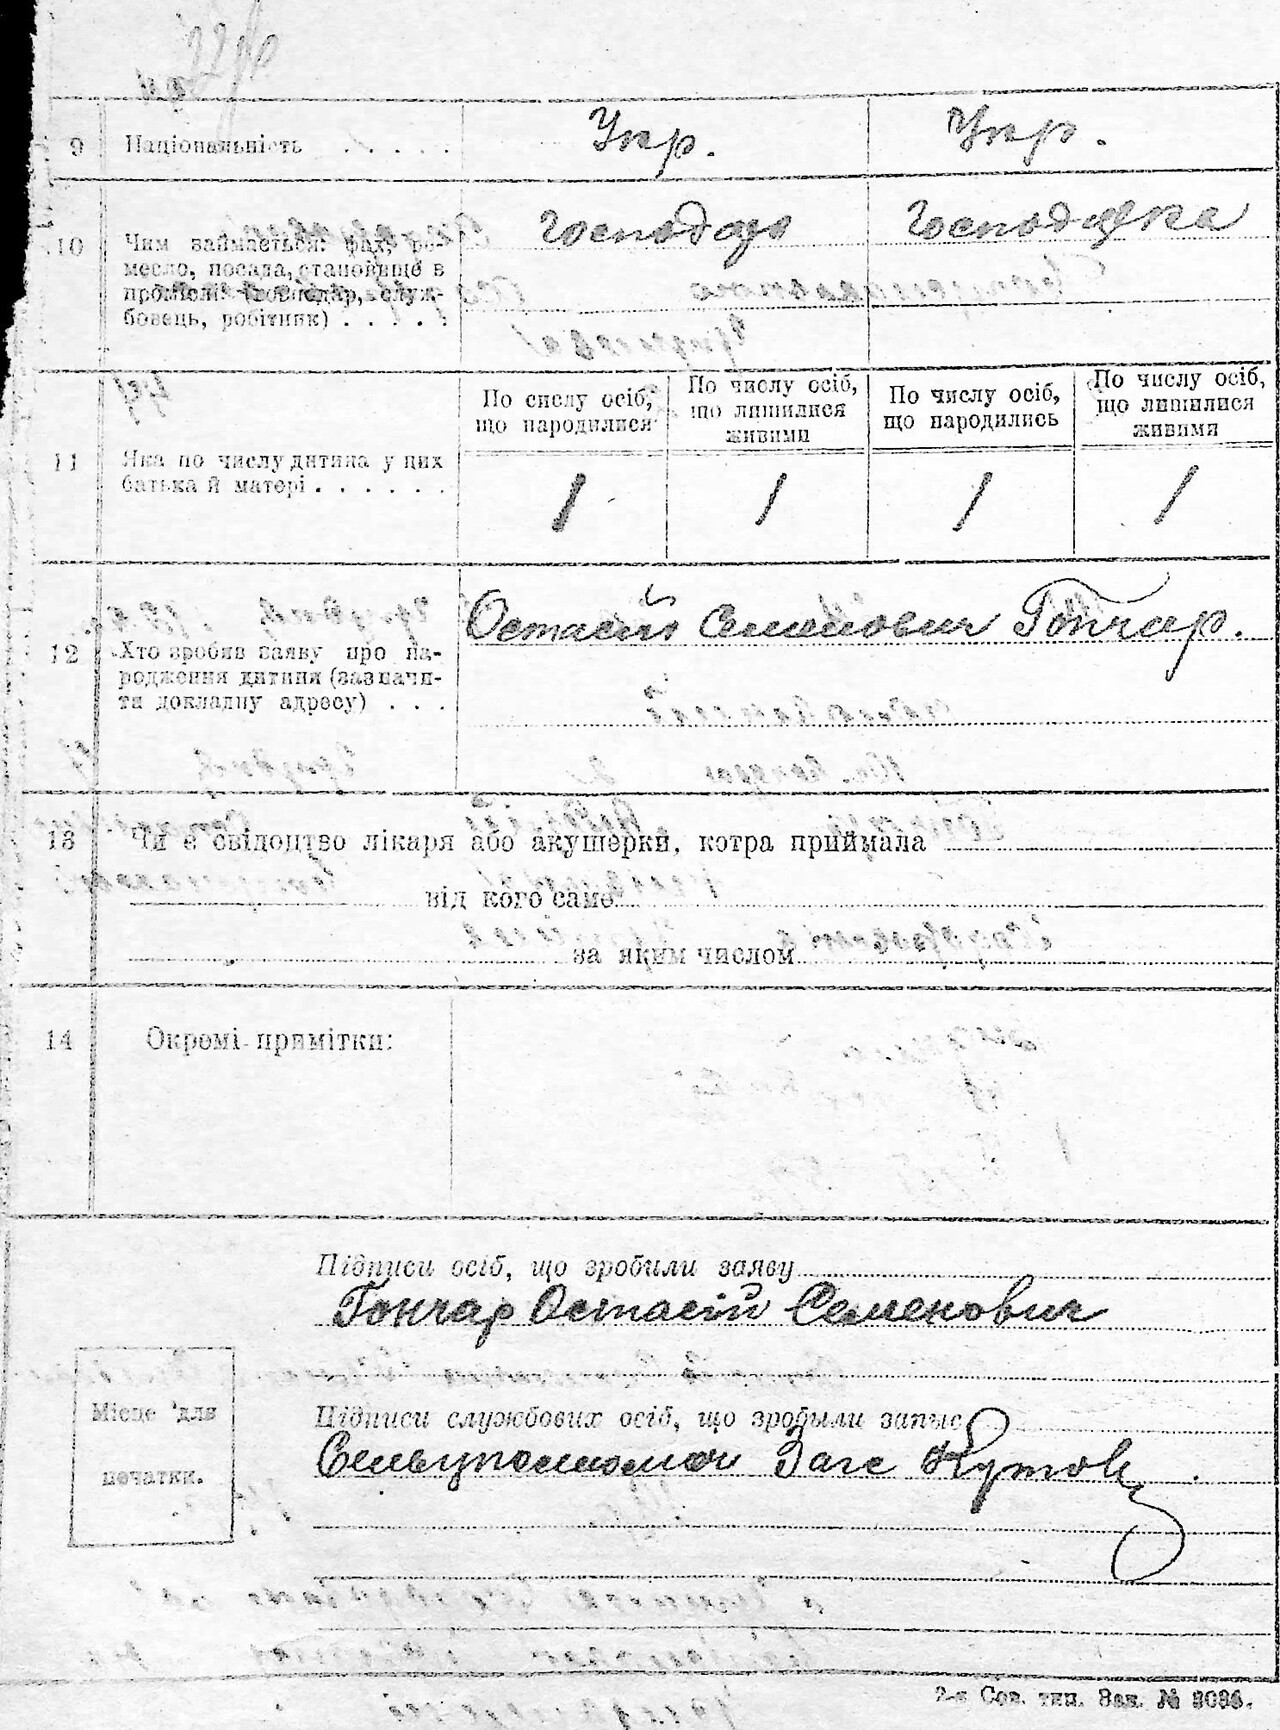 9 Національність . . . . Укр. Укр.
10 Чим займається: фах, ре-
месло, посада, становище в
промислі (господар, служ-
бовець, робітник) . . . . .
Господарь Господарка
11 Яка по числу дитина у цих
батька й матері . . . . . .
По числу осіб,
що народилися
По числу осіб,
що лишилися
живими
По числу осіб,
що народились
По числу осіб,
що лишилися
живими
1 1 1 1
12 Хто зробив заяву про на-
родження дитини (зазначи-
ти докладну адресу) . . .
Остасій Семенович Гончар.
13 Чи є свідоцтво лікаря або акушерки, котра приймала
від кого саме
за яким числом
14 Окремі примітки:
Підписи осіб, що зробили заяву
Гончар Остасій Семенович
Місце для
печатки.
Підписи службових осіб, що зробыли запыс
Загс Кутов
2-я Сов. тип. Зак. №